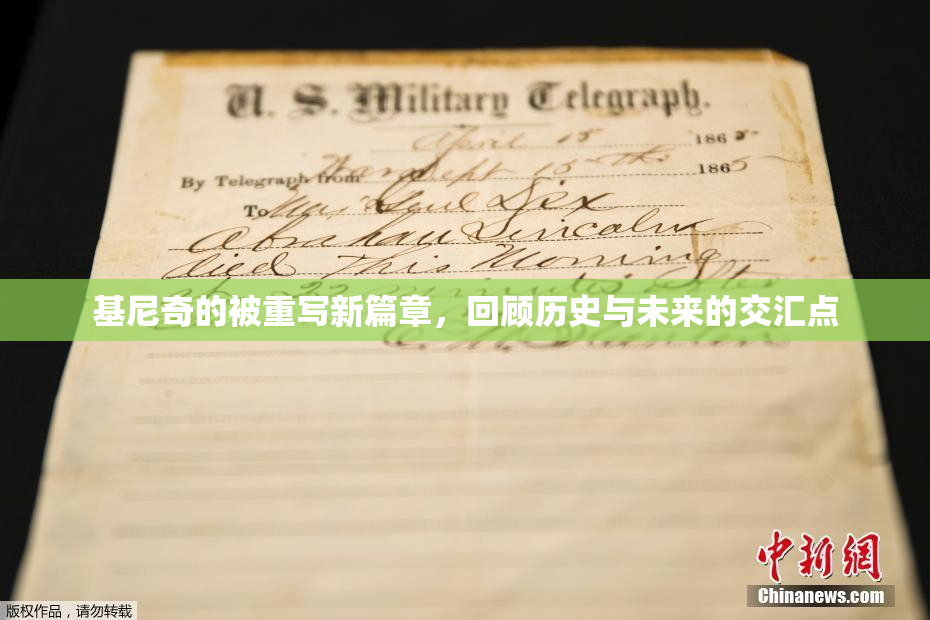 U. S. Military Telegraph.
April 15 1865
By Telegraph from War Dept 15th 1865
To Maj Genl Dix
Abraham Lincoln
died This Morning
at 22 minutes after
基尼奇的被重写新篇章，回顾历史与未来的交汇点
E. M. Stanton
中新网
Chinanews.com
版权作品，请勿转载